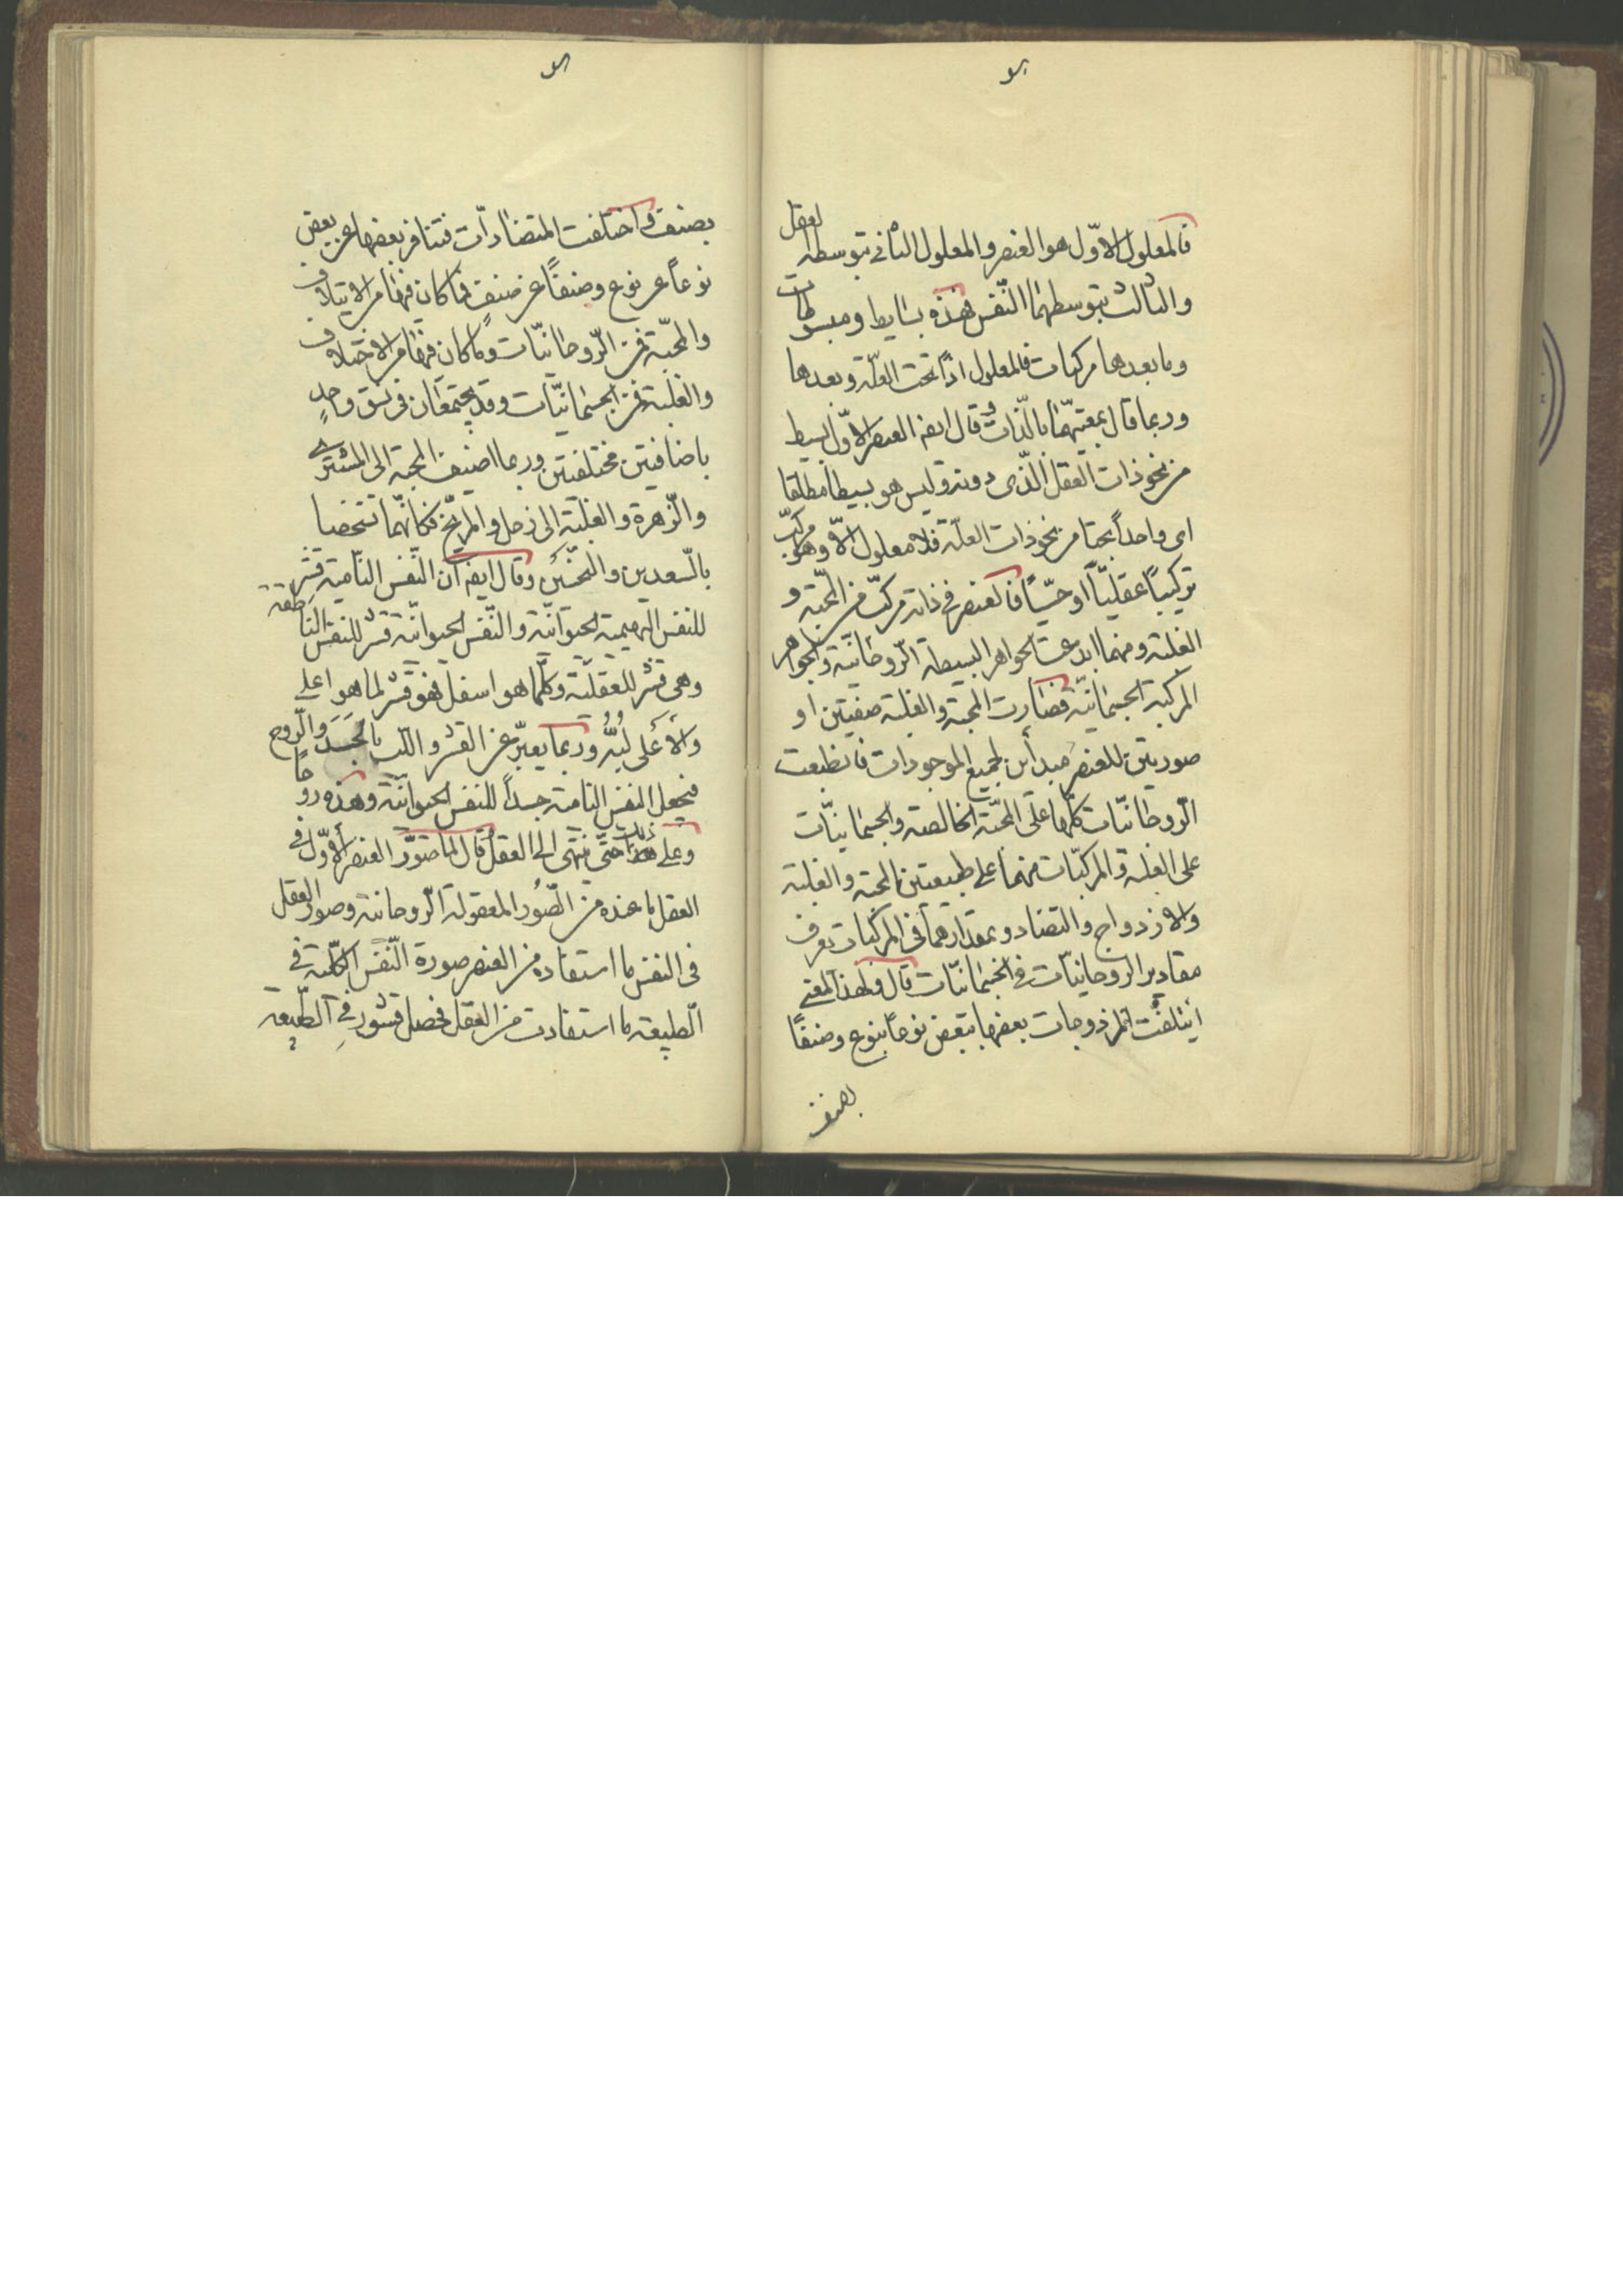 فالمعلول الاوّل هو العنصر والمعلول الثانی بتوسطه العقل
والثالث بتوسطهما النّفس فهذه بسایط ومبسوطات
وما بعدها مركبات فالمعلول اذاً تحت العلّة وبعدها
وربما قال بمعیتهما بالذّات وقال ایضا العنصر الاوّل بسیط
من نحو ذات العقل الّذی دونه ولیس هو بسیطا مطلقا
ای واحداً بحتا من نحو ذات العلّة فلا معلول الّا وهو مركّب
تركیباً عقلیّاً او حسّیاً فالعنصر فی ذاته مركّب من المحبّة و
الغلبة ومنهما ابدعت الجواهر البسیطة الرّوحانیّة والجواهر
المركّبة الجسمانیّة فصارت المحبّة والغلبة صفتین او
صورتین للعنصر مبدأین لجمیع الموجودات فانطبعت
الرّوحانیّات كلّها علی المحبّة الخالصة والجسمانیّات
علی الغلبة والمركبّات منهما علی طبیعتین المحبة والغلبة
والازدواج والتضاد وبمقدارهما فی المركبات یعرف
مقادیر الروحانیّات فی الجسمانیّات قال ولهذا المعنی
ایتلفت المزدوجات بعضها ببعض نوعاً بنوع وصنفاً
بصنف
بصنف واختلفت المتضادّات فتنافر بعضها عن بعض
نوعاً عن نوع وصنفاً عن صنف فما كان فیها من الایتلاف
والمحبّة فمن الرّوحانیّات وما كان فیها من الاختلاف
والغلبة فمن الجسمانیّات وقد یجتمعان فی نسق واحدٍ
باضافتین مختلفتین وربما اضیف المحبة الی المشتری
والزّهرة والغلبة الی زحل والمریّخ فكانّهما تشخصا
بالسّعدین والنّحسین وقال ایضا انّ النّفس النّامیة قشر
للنفس البهیمیة الحیوانیّة والنّفس الحیوانیّة قشر للنفس الناطقة
وهی قشر للعقلیّة وكلّما هو اسفل فهو قشر لما هو اعلی
والأعلی لُبُّه وربما یعبّر عن القشر واللّب بالجَسَد والرّوح
فیجعل النفس النامیة جسداً للنفس الحیوانیّة وهذه روحاً
وعلی ذلك حتّی ینتهی الی العقل قال لما صوّر العنصر الأوّل فی
العقل ما عنده من الصّور المعقولة الرّوحانیة وصوّر العقل
فی النفس ما استفاده من العنصر صورة النّفس الكلّیة فی
الطبیعة ما استفادت من العقل فحصل قشور فی الطّبیعة